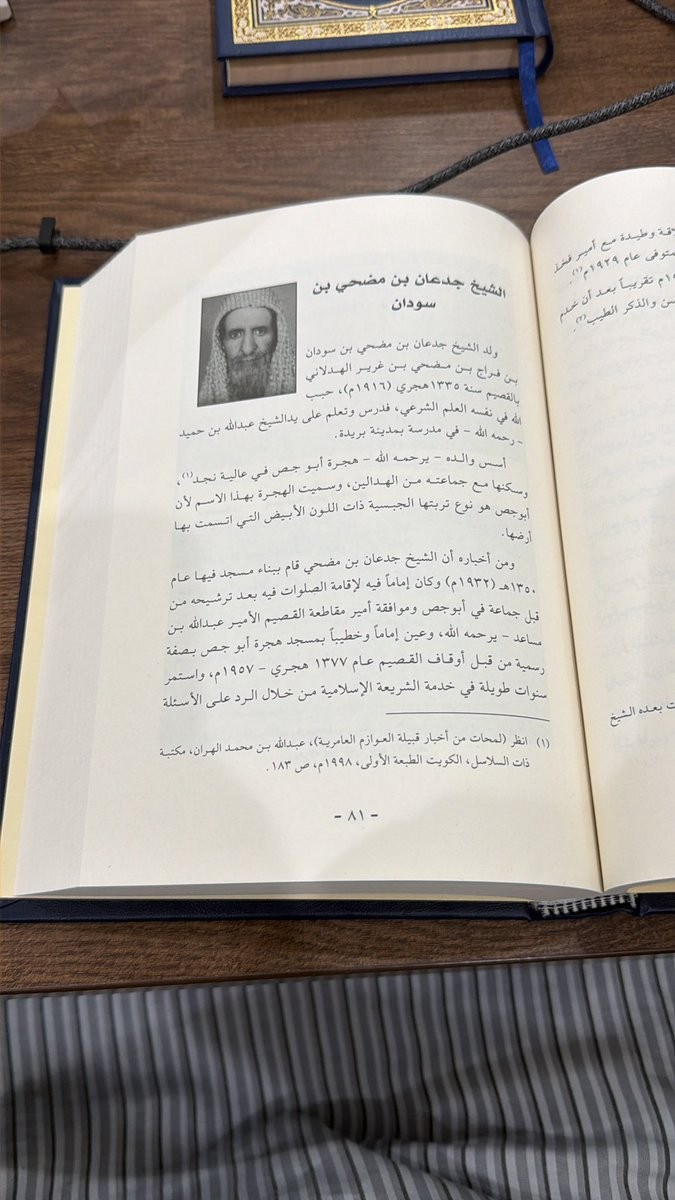 الشيخ جدعان بن مضحي بن
سودان
ولد الشيخ جدعان بن مضحي بن سودان
بن فراج بن مضحي بن غرير الهدلاني
بالقصيم سنة ١٣٣٥هجري (١٩١٦م)، حبب
الله في نفسه العلم الشرعي، فدرس وتعلم على يدالشيخ عبدالله بن حميد
- رحمه الله - في مدرسة بمدينة بريدة.
أسس والده - يرحمه الله - هجرة أبو جص في عالية نجد(١)،
وسكنها مع جماعته من الهدالين، وسميت الهجرة بهذا الاسم لأن
أبوجص هو نوع تربتها الجبسية ذات اللون الأبيض التي اتسمت بها
أرضها.
ومن أخباره أن الشيخ جدعان بن مضحي قام ببناء مسجد فيها عام
١٣٥٠هـ (١٩٣٢م) وكان إماماً فيه لإقامة الصلوات فيه بعد ترشيحه من
قبل جماعة في أبوجص وموافقة أمير مقاطعة القصيم الأمير عبدالله بن
مساعد - يرحمه الله، وعين إماماً وخطيباً بمسجد هجرة أبو جص بصفة
رسمية من قبل أوقاف القصيم عام ١٣٧٧ هجري - ١٩٥٧م، واستمر
سنوات طويلة في خدمة الشريعة الإسلامية من خلال الرد على الأسئلة
(١) انظر (لمحات من أخبار قبيلة العوازم العامرية)، عبدالله بن محمد الهران، مكتبة
ذات السلاسل، الكويت الطبعة الأولى، ١٩٩٨م، ص ١٨٣.
- ٨١ -
وطيدة مع أمير
توفى عام ١٩٢٩م(١).
م تقريباً بعد أن
والذكر الطيب(٢).
ت بعده الشيخ